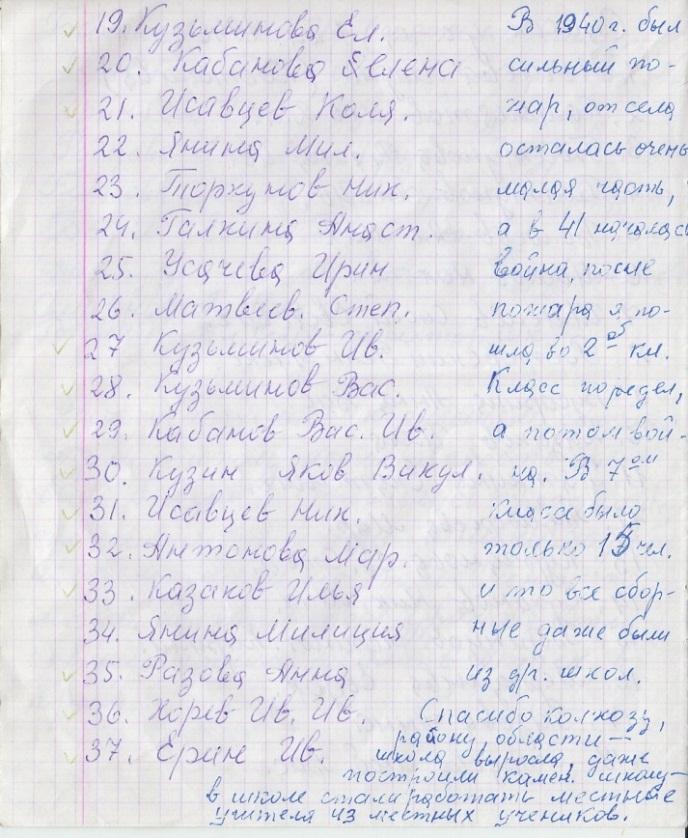 19. Кузьминова Ел.
20. Кабанова Елена
21. Исавцев Коля.
22. Янина Мил.
23. Торхунов Ник.
24. Галкина Анаст.
25. Усачева Ирин
26. Матвеев. Степ.
27 Кузьминов Ив.
28. Кузьминов Вас.
29. Кабанов Вас. Ив.
30. Кузин Яков Викул.
31. Исавцев Ник.
32. Антонова Мар.
33. Казаков Илья
34. Янина Милиция
35. Разова Анна
36. Хорев Ив. Ив.
37. Ерин Ив.
В 1940 г. был
сильный по-
жар, от села
осталась очень
малая часть,
а в 41 началась
война, после
пожара я по-
шла во 2 ой кл.
Класс поредел,
а потом вой-
на. В 7 ом
классе было
только 15 чел.
и то все сбор-
ные даже были
из др. школ.
Спасибо колхозу,
району, области —
школа выросла, даже
построили камен. школу —
в школе стали работать местные
учителя из местных учеников.